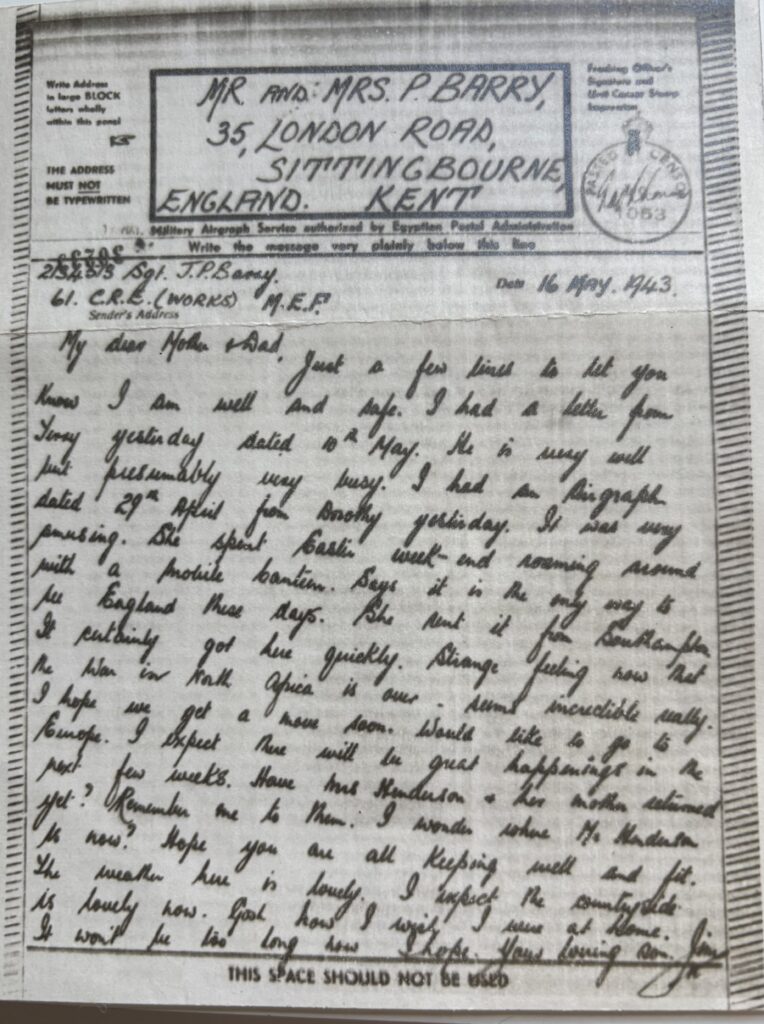 Write Address
in large BLOCK
letters wholly
within this panel
THE ADDRESS
MUST NOT
BE TYPEWRITTEN
MR. AND MRS. P. BARRY,
35, LONDON ROAD,
SITTINGBOURNE,
ENGLAND. KENT
Signature and
Unit Censor Stamp
PASSED CENSOR
Military Airgraph Service authorized by Egyptian Postal Administration
Write the message very plainly below this line
Sgt. J.P. Barry.
61. C.R.E. (WORKS) M.E.F.
Sender's Address
Date 16 MAY. 1943.
My dear Mother & Dad,
Just a few lines to let you
know I am well and safe. I had a letter from
Terry yesterday dated 10th May. He is very well
but presumably very busy. I had an Airgraph
dated 29th April from Dorothy yesterday. It was very
amusing. She spent Easter week-end roaming around
with a mobile canteen. Says it is the only way to
see England these days. She sent it from Southampton
It certainly got here quickly. Strange feeling now that
the war in North Africa is over - seems incredible really.
I hope we get a move soon. Would like to go to
Europe. I expect there will be great happenings in the
next few weeks. Have Mrs Henderson & her mother returned
yet? Remember me to them. I wonder where Mr Henderson
is now? Hope you are all keeping well and fit.
The weather here is lovely. I expect the countryside
is lovely now. Gosh how I wish I were at home.
It won't be too long now I hope. Your loving son. Jim
THIS SPACE SHOULD NOT BE USED